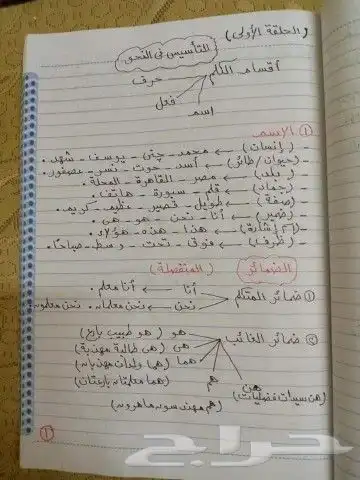 (الحلقة الأولى)
التأسيس في النحو
أقسام الكلم
حرف
فعل
اسم
① الاسم
- (إنسان) ← محمد - چنى - يوسف - شهد.
- (حيوان/طائر) ← أسد - حوت - نسر - عصفور.
- (بلد) ← مصر - القاهرة - المحلة.
- (جماد) ← قلم - سبورة - هاتف.
- (صفة) ← طويل - قصير - عظيم - كريم.
- (ضمير) ← أنا - نحن - هو - هى.
- (إشارة) ← هذا - هذه - هؤلاء.
- (ظرف) ← فوق - تحت - وسط - صباحًا.
الضمائر (المنفصلة)
① ضمائر المتكلم
أنا ← أنا معلم.
نحن ← نحن معلمان. نحن معلمون
② ضمائر الغائب
هو (هو طبيب بارع)
هى (هى طالبة مهذبة)
هما (هما ولدان مهذبان)
(هما معلمتان بارعتان)
هم
(هم مهندسون ماهرون)
هن
(هن سيدات فضليات)
①
حراج